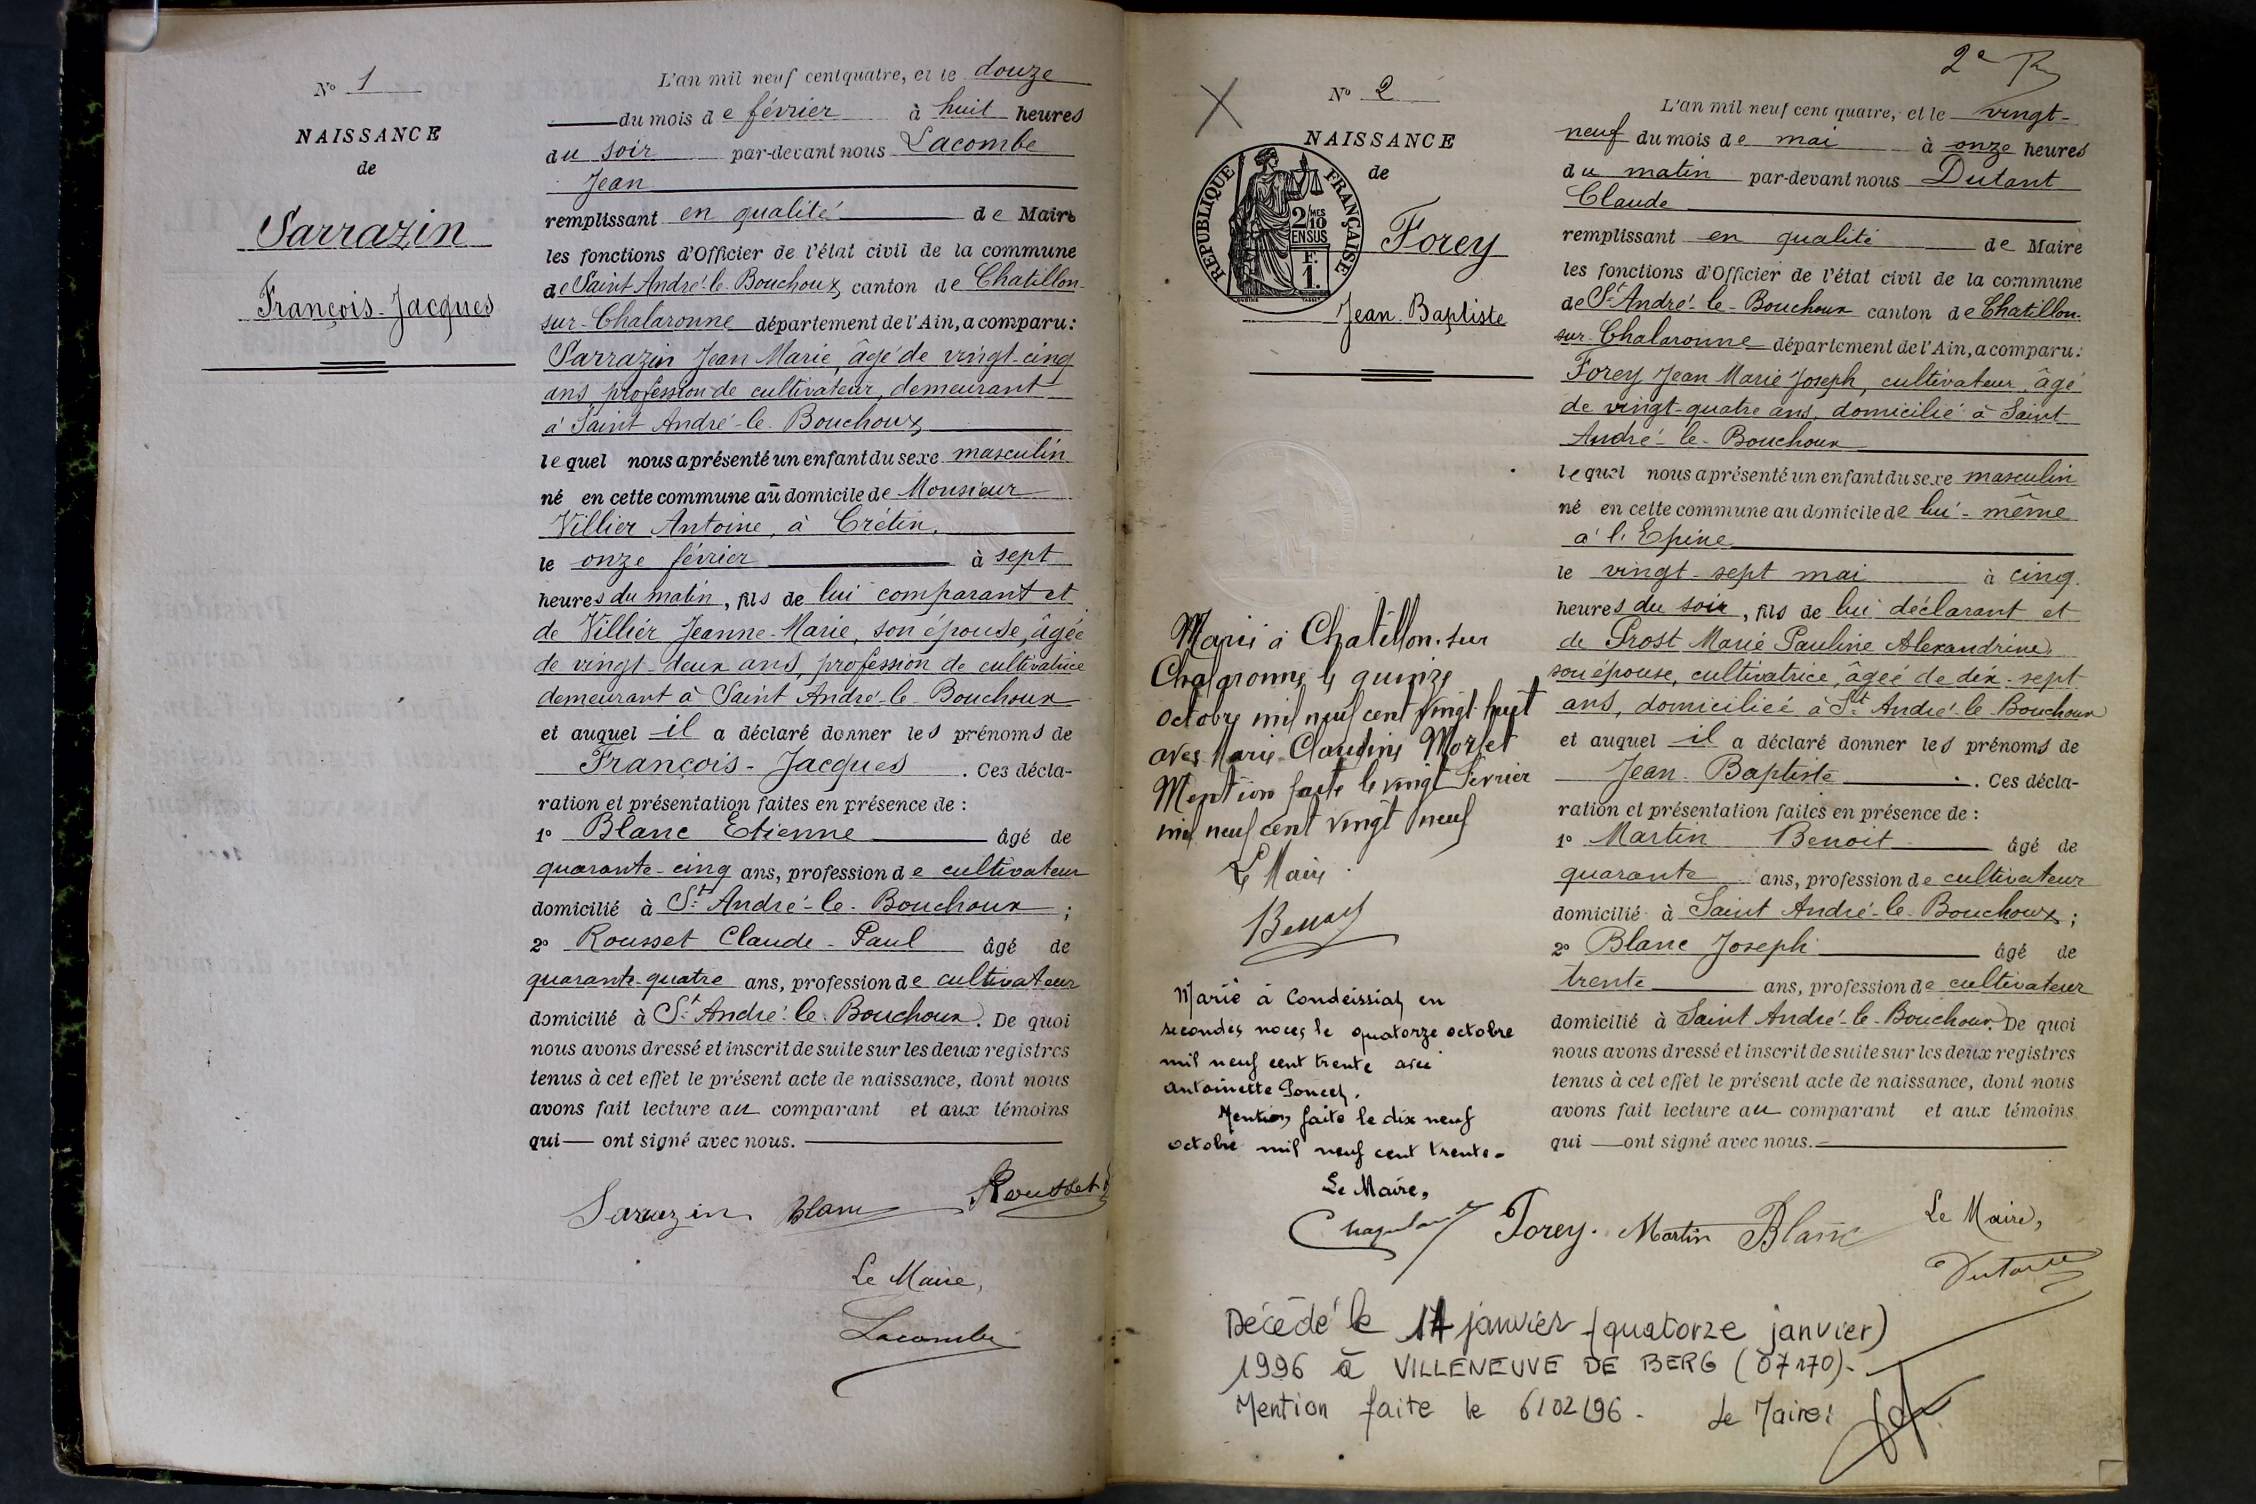 N° 1
NAISSANCE
de
Sarrazin
François-Jacques
L'an mil neuf cent quatre, et le douze
du mois de février à huit heures
du soir par-devant nous Lacombe
Jean
remplissant en qualité de Maire
les fonctions d'Officier de l'état civil de la commune
de Saint André-le-Bouchoux canton de Chatillon-
sur-Chalaronne département de l'Ain, a comparu:
Sarrazin Jean Marie, âgé de vingt-cinq
ans, profession de cultivateur, demeurant
à Saint André-le-Bouchoux
lequel nous a présenté un enfant du sexe masculin
né en cette commune au domicile de Monsieur
Villier Antoine, à Crétin,
le onze février à sept
heures du matin, fils de lui comparant et
de Villier Jeanne-Marie, son épouse, âgée
de vingt-deux ans, profession de cultivatrice
demeurant à Saint André-le-Bouchoux
et auquel il a déclaré donner les prénoms de
François-Jacques. Ces décla-
ration et présentation faites en présence de :
1° Blanc Etienne âgé de
quarante-cinq ans, profession de cultivateur
domicilié à St André-le-Bouchoux ;
2° Rousset Claude-Paul âgé de
quarante-quatre ans, profession de cultivateur
domicilié à St André-le-Bouchoux. De quoi
nous avons dressé et inscrit de suite sur les deux registres
tenus à cet effet le présent acte de naissance, dont nous
avons fait lecture au comparant et aux témoins
qui — ont signé avec nous.
Sarrazin Blanc Rousset
Le Maire,
Lacombe
2e R
N° 2
NAISSANCE
de
RÉPUBLIQUE FRANÇAISE
2/10MES
EN SUS
F.
1.
Forey
Jean-Baptiste
Marié à Chatillon-sur
Chalaronne le quinze
octobre mil neuf cent vingt huit
avec Marie Claudine Morlet
Mention faite le vingt février
mil neuf cent vingt neuf
Le Maire
Marié à Condeissiat en
secondes noces le quatorze octobre
mil neuf cent trente avec
Antoinette Poncet.
Mention faite le dix neuf
octobre mil neuf cent trente.
Le Maire,
L'an mil neuf cent quatre, et le vingt-
neuf du mois de mai à onze heures
du matin par-devant nous Dutant
Claude
remplissant en qualité de Maire
les fonctions d'Officier de l'état civil de la commune
de St André-le-Bouchoux canton de Chatillon-
sur-Chalaronne département de l'Ain, a comparu:
Forey Jean Marie Joseph, cultivateur, âgé
de vingt-quatre ans, domicilié à Saint
André-le-Bouchoux
lequel nous a présenté un enfant du sexe masculin
né en cette commune au domicile de lui-même
à l'Epine
le vingt-sept mai à cinq
heures du soir, fils de lui déclarant et
de Prost Marie Pauline Alexandrine,
son épouse, cultivatrice, âgée de dix-sept
ans, domiciliée à St André-le-Bouchoux
et auquel il a déclaré donner les prénoms de
Jean-Baptiste. Ces décla-
ration et présentation faites en présence de :
1° Martin Benoit âgé de
quarante ans, profession de cultivateur
domicilié à Saint André-le-Bouchoux ;
2° Blanc Joseph âgé de
trente ans, profession de cultivateur
domicilié à Saint André-le-Bouchoux. De quoi
nous avons dressé et inscrit de suite sur les deux registres
tenus à cet effet le présent acte de naissance, dont nous
avons fait lecture au comparant et aux témoins
qui — ont signé avec nous.
Forey. Martin Blanc
Le Maire,
Dutant
Décédé le 14 janvier (quatorze janvier)
1996 à VILLENEUVE DE BERG (07170).
Mention faite le 6/02/96. Le Maire: